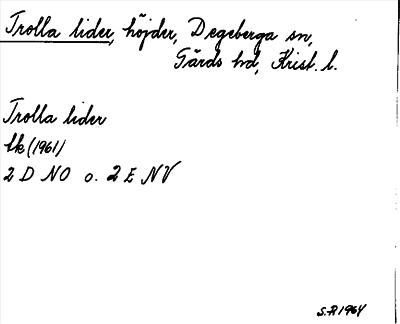 Trolla lider, höjder, Degeberga sn,
Gärds hd, Krist. l.
Trolla lider
tk (1961)
2 D NO o. 2 E NV
S.R 1964